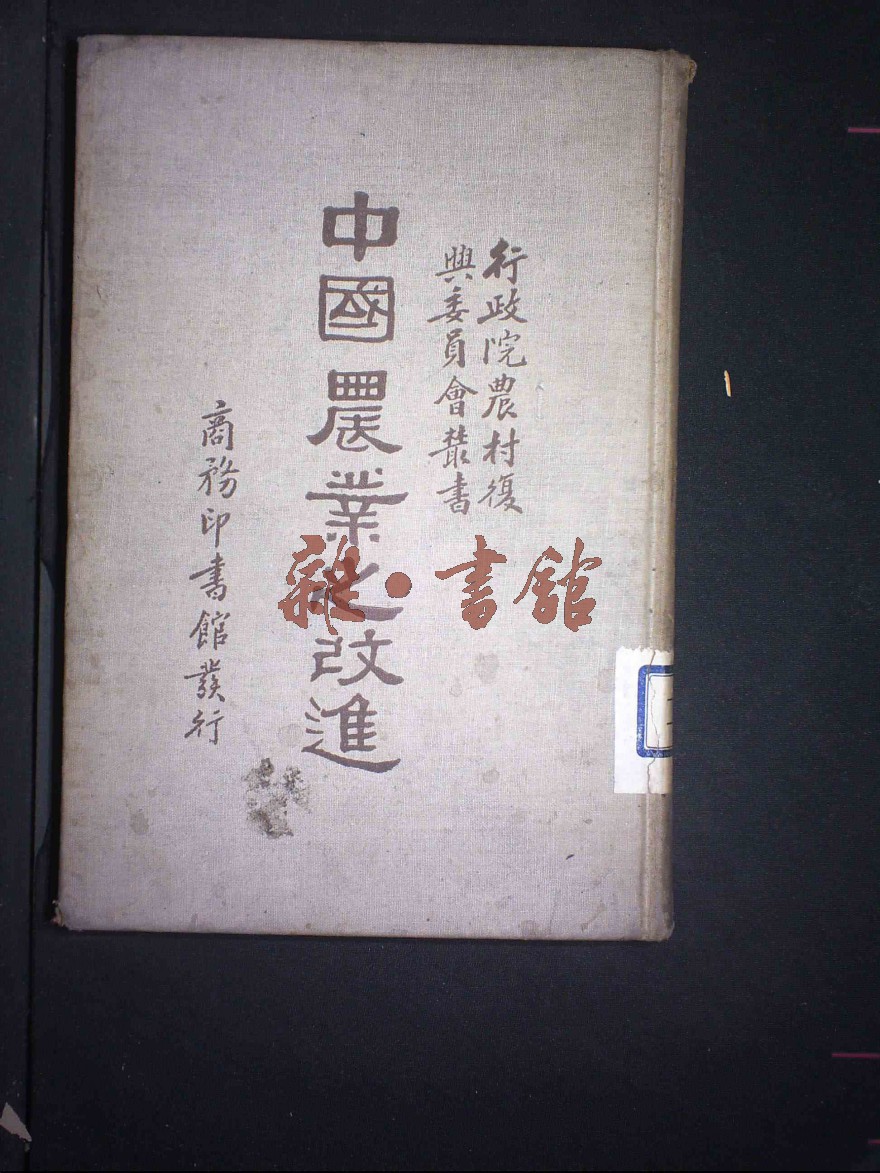 行政院農村復
興委員會叢書
中國農業之改進
商務印書館發行
雜·書館